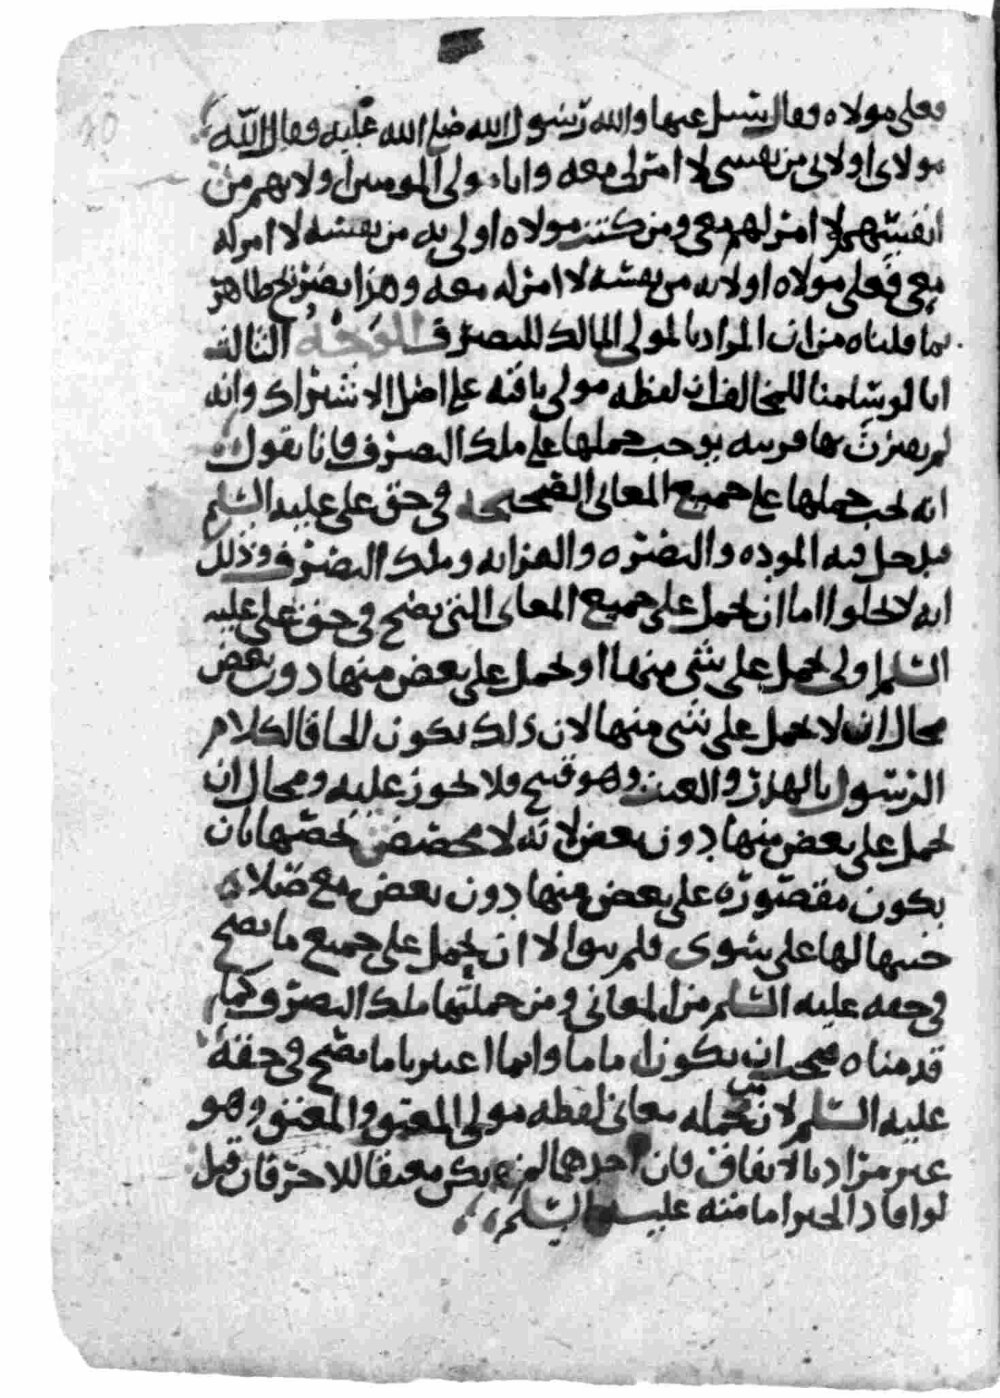 فعلي مولاه وقال سل عنها والله رسول الله صلى الله عليه وقال الله
مولاي اولى بي من نفسي لا امر لي معه وانا مولى المومنين اولى بهم من
انفسهم لا امر لهم معي ومن كنت مولاه اولى به من نفسه لا امر له
معي فعلي مولاه اولى به من نفسه لا امر له معه وهذا تصريح ظاهر
بما قلناه من ان المراد بالمولى المالك للتصرف الوجه الثالث
انا لو سلمنا للمخالف ان لفظه مولى باقيه على اصل الاشتراك وانه
لم يقترن بها قرينه يوجب حملها على ملك التصرف فانا نقول
انه يجب حملها على جميع المعاني الصحيحه في حق علي عليه السلم
فيدخل فيه الموده والنصره والقرابه وملك التصرف وذلك
انه لا يخلوا اما ان يحمل على جميع المعاني التي تصح في حق علي عليه
السلم او لا يحمل على شي منها او يحمل على بعض منها دون بعض
محال ان لا يحمل على شي منها لان ذلك يكون الحاقا لكلام
الرسول بالهذر والعبث وهو قبيح فلا يجوز عليه ومحال ان
يحمل على بعض منها دون بعض لانه لا مخصص يخصها بان
يكون مقصوره على بعض منها دون بعض مع صلاح
لها على سوى فلم يبق الا ان يحمل على جميع ما يصح
في حقه عليه السلم من المعاني ومن جملتها ملك التصرف كما
قدمناه فيجب ان يكون اماما وانما اعتبرنا ما يصح في حقه
عليه السلم لان من جمله معاني لفظه مولى المعتق والمعتق وهو
غير مراد بالاتفاق فان احدهما لم يكن معتقا للاخر فان قيل
لو افاد الخبر امامته عليه السلم